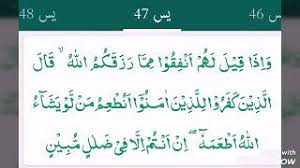 48 يس
47 يس
46 يس
وَاِذَا قِيْلَ لَهُمْ اَنْفِقُوْا مِمَّا رَزَقَكُمُ اللّٰهُ ۙ قَالَ
الَّذِيْنَ كَفَرُوْا لِلَّذِيْنَ اٰمَنُوْٓا اَنُطْعِمُ مَنْ لَّوْ يَشَآءُ
اللّٰهُ اَطْعَمَهٗٓ ۖ اِنْ اَنْتُمْ اِلَّا فِيْ ضَلٰلٍ مُّبِيْنٍ